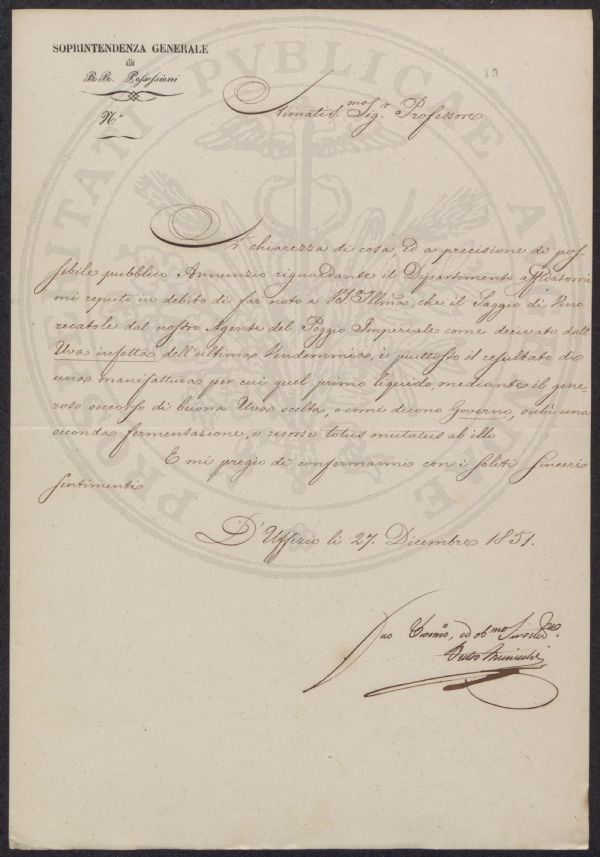 SOPRINTENDENZA GENERALE
alle
RR. Possessioni
N.°
Stimatis.mo Sig.r Professore
A chiarezza di cosa, ed a precisione di pos-
sibile pubblico Annunzio riguardante il Dipartimento affidatomi
mi reputo in debito di far noto a V.S. Illma, che il Saggio di Vino
recatole dal nostro Agente del Poggio Imperiale come derivato dall'
Uva infetta dell'ultima Vendemmia, è piuttosto il resultato di
una manifattura per cui quel primo liquido mediante il gene-
roso soccorso di buona Uva scelta, o come dicono Governo, subì una
seconda fermentazione, e risorse totus mutatus ab illo
E mi pregio di confermarmi con i soliti sinceri
sentimenti
D'Uffizio li 27. Dicembre 1851.
Suo Devmo, ed ob.mo Servitore
PROSPERITATI PVBLICAE AVGENDAE